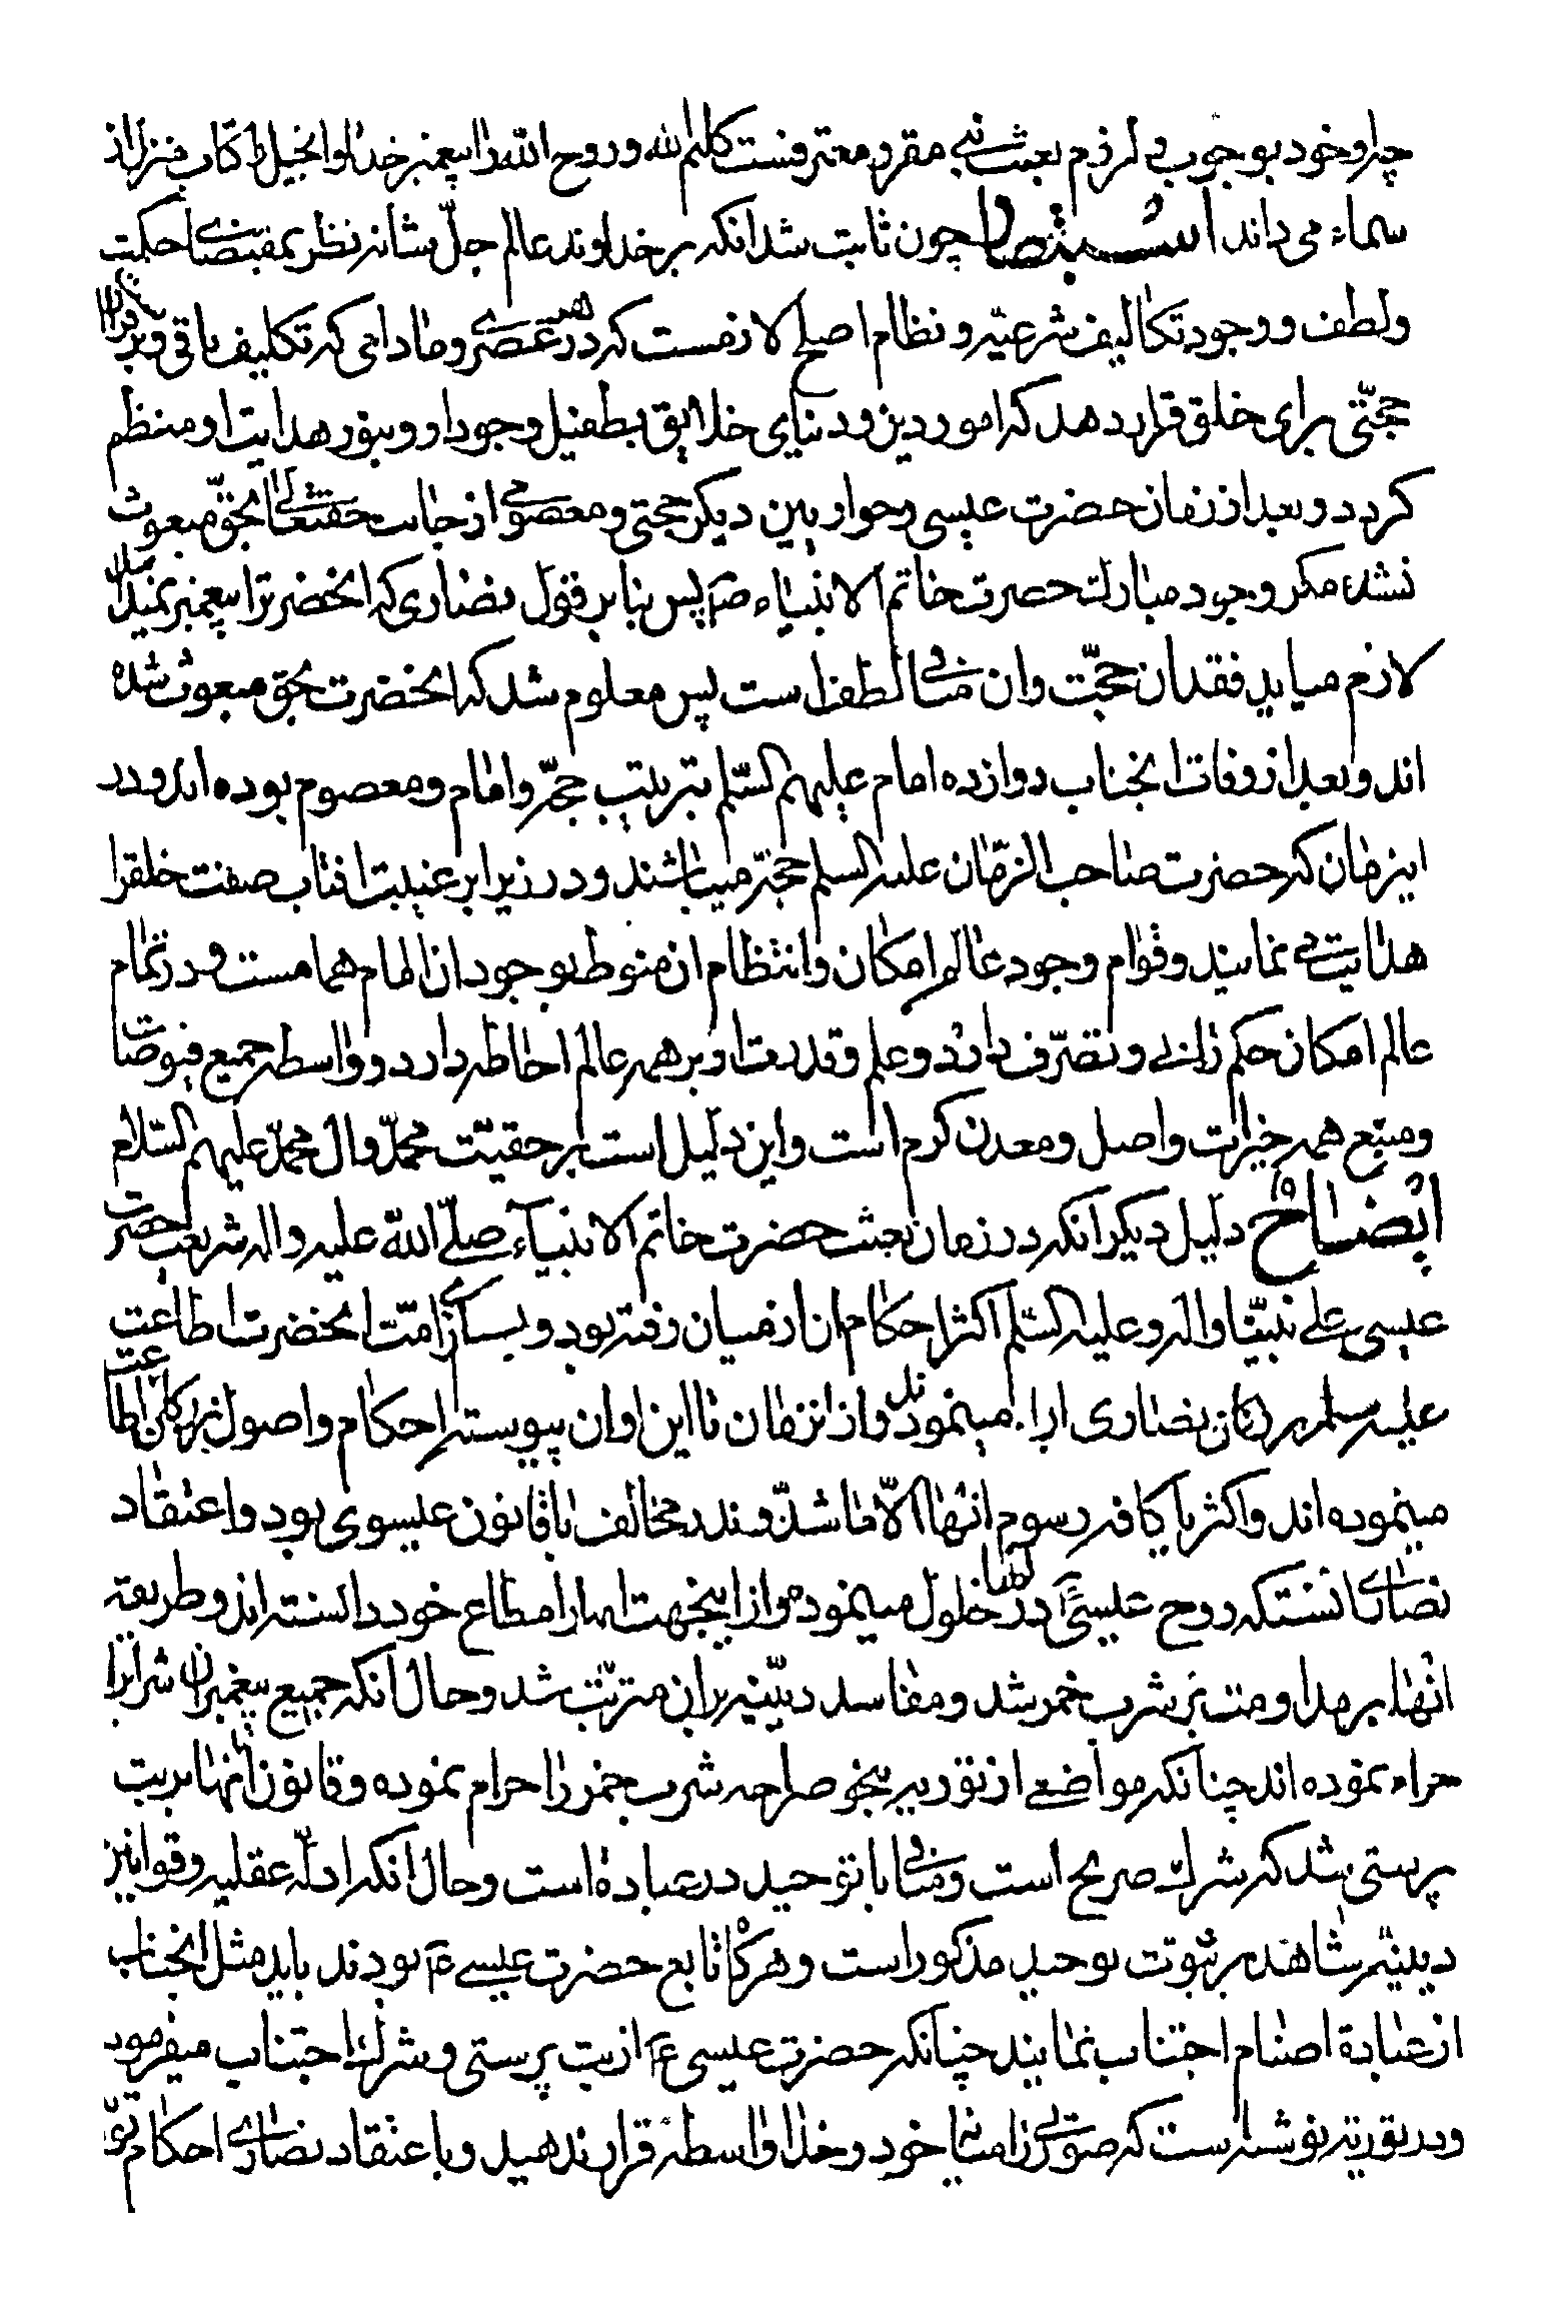 چرا و خود بوجوب و لزوم بعثت نبی مقر و معترفست کلیم الله و روح الله را پیغمبر خدا و انجیل را کتاب منزل از
سماء می داند استبصار چون ثابت شد انکه بر خداوند عالم جلّ شانه نظر بمقتضای حکمت
ولطف و وجود تکالیف شرعیّه و نظام اصلح لازمست که در هر عصری و مادامی که تکلیف باقی و برقرار
حجّتی برای خلق قرار دهد که امور دین و دنیای خلایق بطفیل وجود او و بنور هدایت او منتظم
کردد و بعد از زمان حضرت عیسی و حواریین دیکر حجتی و معصومی از جانب حقتعالی بحقّ مبعوث
نشده مکر وجود مبارک حضرت خاتم الانبیاء ص پس بنابر قول نصاری که انحضرترا پیغمبر نمیدانند
لازم میاید فقدان حجّت و ان منافی لطف است پس معلوم شد که انحضرت بحق مبعوث شده
اند و بعد از وفات انجناب دوازده امام علیهم السّلم بترتیب حجّة و امام و معصوم بوده اند و در
اینزمان که حضرت صاحب الزّمان علیه السلم حجّة میباشند و در زیر ابر غیبت افتاب صفت خلقرا
هدایت می نمایند و قوام وجود عالم امکان و انتظام ان منوط بوجود ان امام همامست و در تمام
عالم امکان حکم رانی و تصرّف دارد و علم و قدرت او بر همه عالم احاطه دارد و واسطه جمیع فیوضات
و منبع همه خیرات و اصل و معدن کرم است و این دلیل است بر حقیّت محمّد و ال محمّد علیهم السّلام
ایضاح دلیل دیکر انکه در زمان بعثت حضرت خاتم الانبیآء صلّی الله علیه و اله شریعت حضرت
عیسی علی نبیّنا و اله و علیه السّلم اکثر احکام ان از میان رفته بود و بسیاری از امّت انحضرت اطاعت
علیه بزرکان نصاری را میٖنمودند و از انزمان تا این اوان پیوسته احکام و اصول بزرکان اطاعت
مینموده اند و اکثر یا کافه رسوم انها الّا ما شذّ و ندر مخالف با قانون عیسوی بود و اعتقاد
نصاری انستکه روح عیسی ع در انها حلول مینمود و از اینجهت انها را مطاع خود دانسته اند و طریقه
انها بر مداومت بر شرب خمر شد و مفاسد دینیّه بر ان مترتّب شد و حال انکه جمیع پیغمبران شرابرا
حرام نموده اند چنانکه مواضعی از توریة بنحو صراحه شرب خمر را حرام نموده و قانون انها بر بت
پرستی شد که شرک صریح است و منافی با توحید در عباده است و حال انکه ادلّه عقلیه و قوانین
دینیّه شاهد بر ثبوت توحید مذکور است و هرکاه تابع حضرت عیسی ع بودند باید مثل انجناب
از عبادة اصنام اجتناب نمایند چنانکه حضرت عیسی ع از بت پرستی و شرک اجتناب میفرمود
و در توریة نوشته است که صورتی را میان خود و خدا واسطه قرار ندهید و باعتقاد نصاری احکام تو